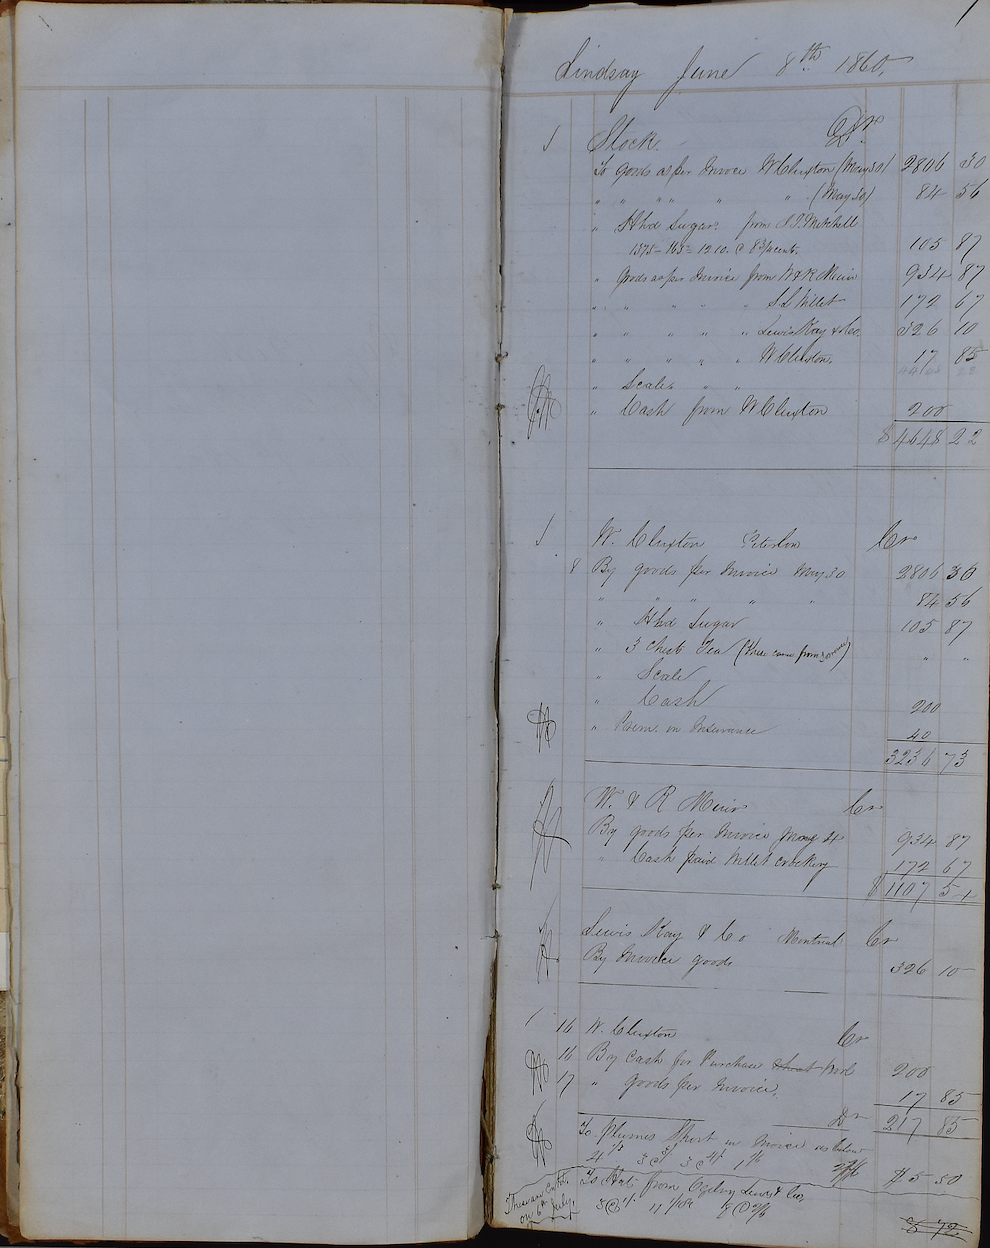 Lindsay June 8th 1860,
1 Stock Dr
To goods as per Invoice W Cluxton (May 30) 2806 30
" " " " " " (May 30) 84 56
" Hhd Sugar from Mitchell
1375 - 165 = 1210. @ 8 3/4 cents. 105 87
" Goods as per Invoice from W & R Muir 934 87
" " " " " Millet 172 67
" " " " " Lewis Kay & Co. 326 10
" " " " " W Cluxton. 17 85
" Scales " "
" Cash from W Cluxton 200
$ 4648 22
1 W. Cluxton Cr
8 By goods per Invoice May 30 2806 30
" " " " " 84 56
" Hhd Sugar 105 87
" 3 Chests Tea " "
" Scale
" Cash 200
" Prem. on Insurance 40
3236 73
W. & R Muir Cr
By goods per Invoice 934 87
" Cash paid Millet crockery 172 67
$ 1107 54
Lewis Kay & Co Montreal Cr
By Invoice goods 326 10
1 16 W. Cluxton Cr
16 By Cash for Purchase 200
17 " Goods per Invoice. 17 85
217 85
Dr
To Plumes Short in Invoice as below
$5 50
To Hats from Ogilvy Lewis & Co,
on 6th July.
5 72